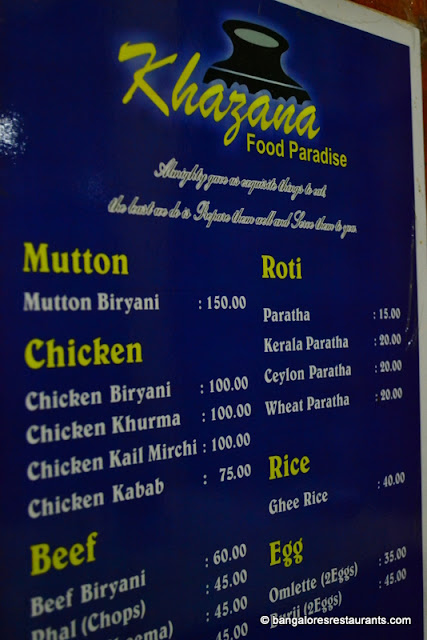 Khazana
Food Paradise
Almighty gave us exquisite things to eat,
the least we do is Prepare them well and Serve them to you.
Mutton
Mutton Biryani : 150.00
Chicken
Chicken Biryani : 100.00
Chicken Khurma : 100.00
Chicken Kail Mirchi : 100.00
Chicken Kabab : 75.00
Beef
Beef Biryani : 60.00
Phal (Chops) : 45.00
: 45.00
: 45.00
Roti
Paratha : 15.00
Kerala Paratha : 20.00
Ceylon Paratha : 20.00
Wheat Paratha : 20.00
Rice
Ghee Rice : 40.00
Egg
Omlette (2Eggs) : 35.00
Burji (2Eggs) : 45.00
© bangaloresrestaurants.com